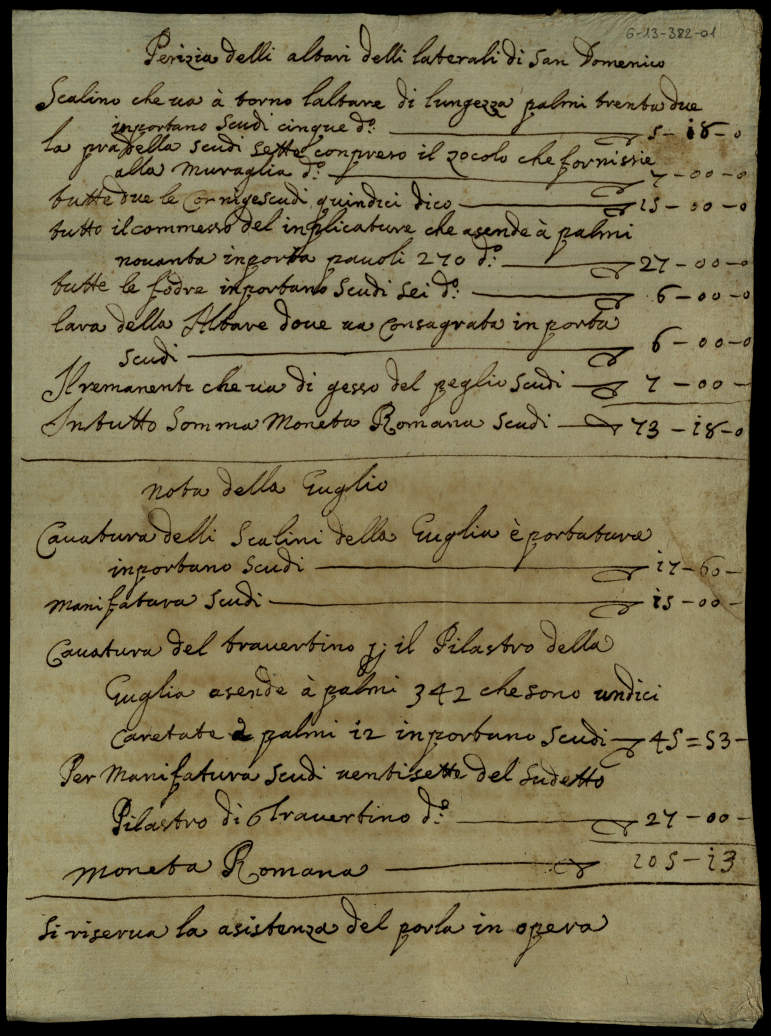 6-13-382-01
Perizia delli altari delli laterali di San Domenico
Scalino che ua à torno laltare di lungezza palmi trenta due
inportano Scudi cinque d:º 5-18-0
la pradella scudi sette conpreso il zocolo che fornissie
alla muraglia d:º 7-00-0
tutte due le cornige scudi quindici dico 15-00-0
tutto il commesso del inplicature che asende à palmi
nouanta inporta pauoli 270 d:º 27-00-0
tutte le fodre inportano Scudi Sei d:º 6-00-0
lara della Altare doue ua Consagrata inporta
Scudi 6-00-0
Il remanente che ua di gesso del peglio Scudi 7-00-
In tutto Somma Moneta Romana Scudi 73-18-0
nota della Guglio
Cauatura delli Scalini della Guglia è portature
inportano Scudi 17-60-
manifatura Scudi 15-00-
Cauatura del trauertino p; il Pilastro della
Guglia asende à palmi 342 che sono undici
Caretate palmi 12 inportano Scudi 45=53-
Per Manifatura Scudi uentisette del Sudetto
Pilastro di Trauertino d:º 27-00-
moneta Romana 105-13
Si riserua la asistenza del porla in opera